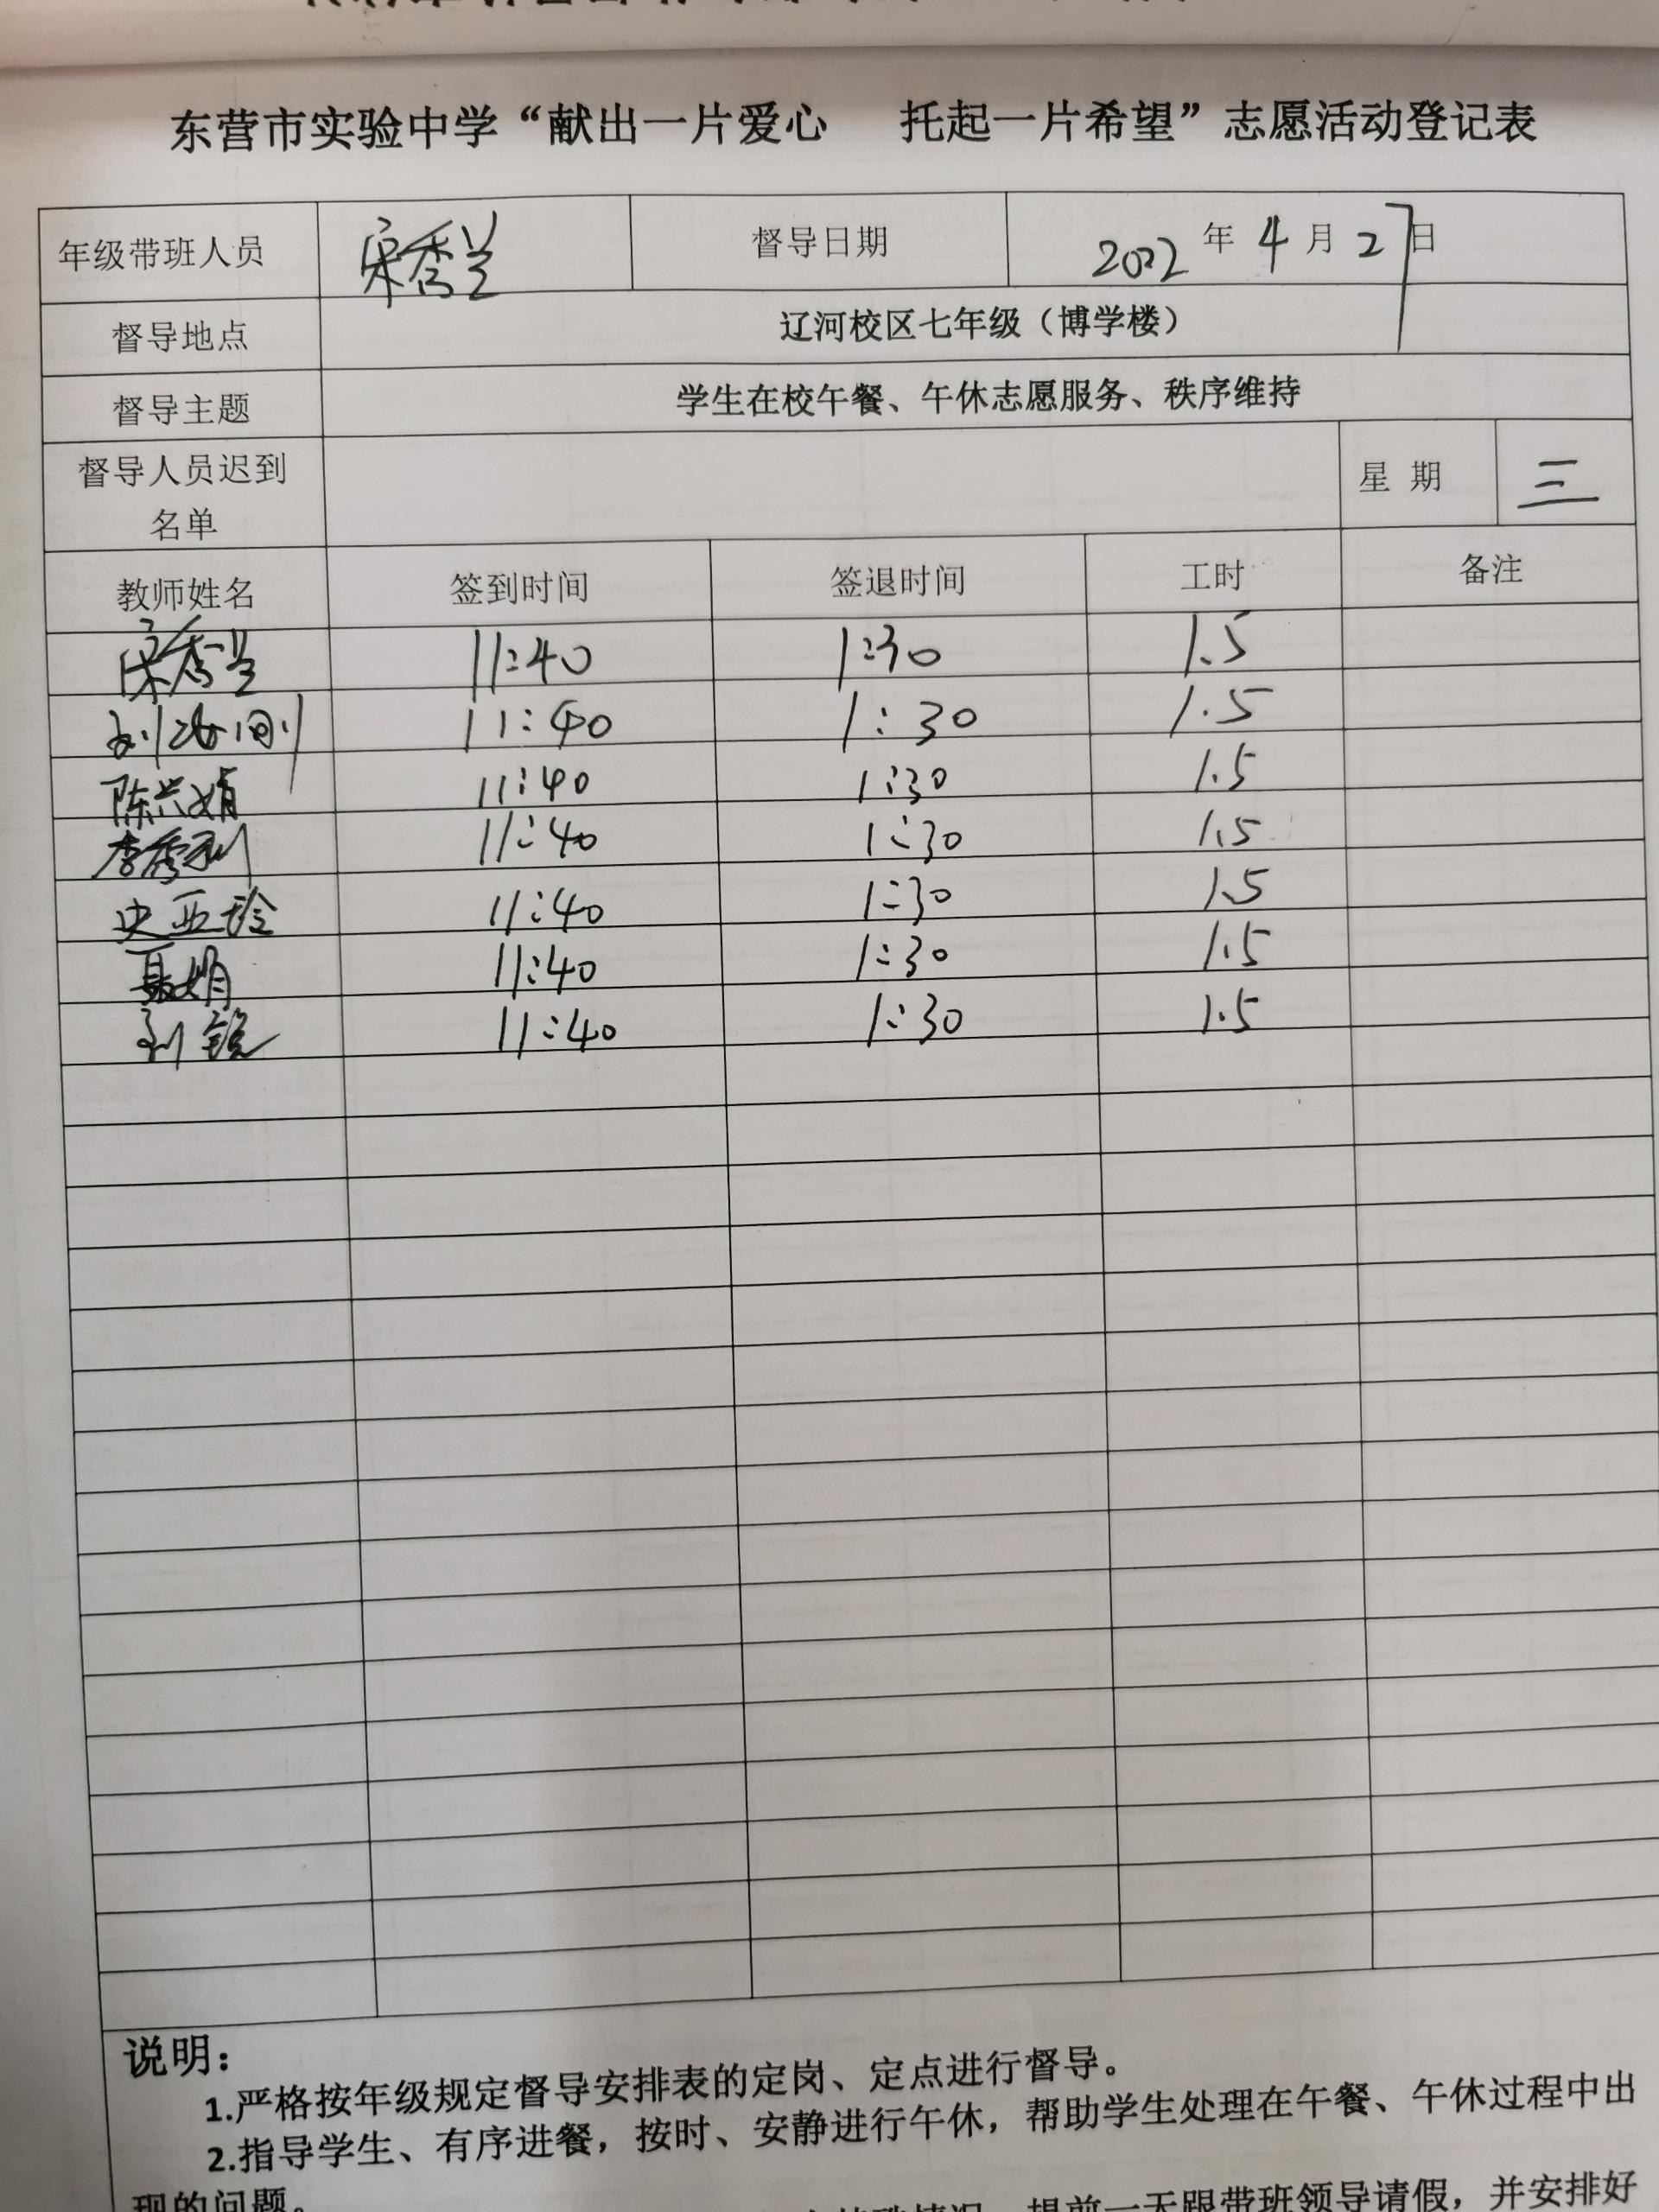 东营市实验中学“献出一片爱心 托起一片希望”志愿活动登记表
年级带班人员 宋秀兰 督导日期 2022年4月27日
督导地点 辽河校区七年级（博学楼）
督导主题 学生在校午餐、午休志愿服务、秩序维持
督导人员迟到名单 星期 三
教师姓名 签到时间 签退时间 工时 备注
宋秀兰 11:40 1:30 1.5
11:40 1:30 1.5
陈兰娟 11:40 1:30 1.5
李秀利 11:40 1:30 1.5
史亚玲 11:40 1:30 1.5
聂娟 11:40 1:30 1.5
刘锐 11:40 1:30 1.5
说明：
1.严格按年级规定督导安排表的定岗、定点进行督导。
2.指导学生、有序进餐，按时、安静进行午休，帮助学生处理在午餐、午休过程中出
现的问题。
提前一天跟带班领导请假，并安排好